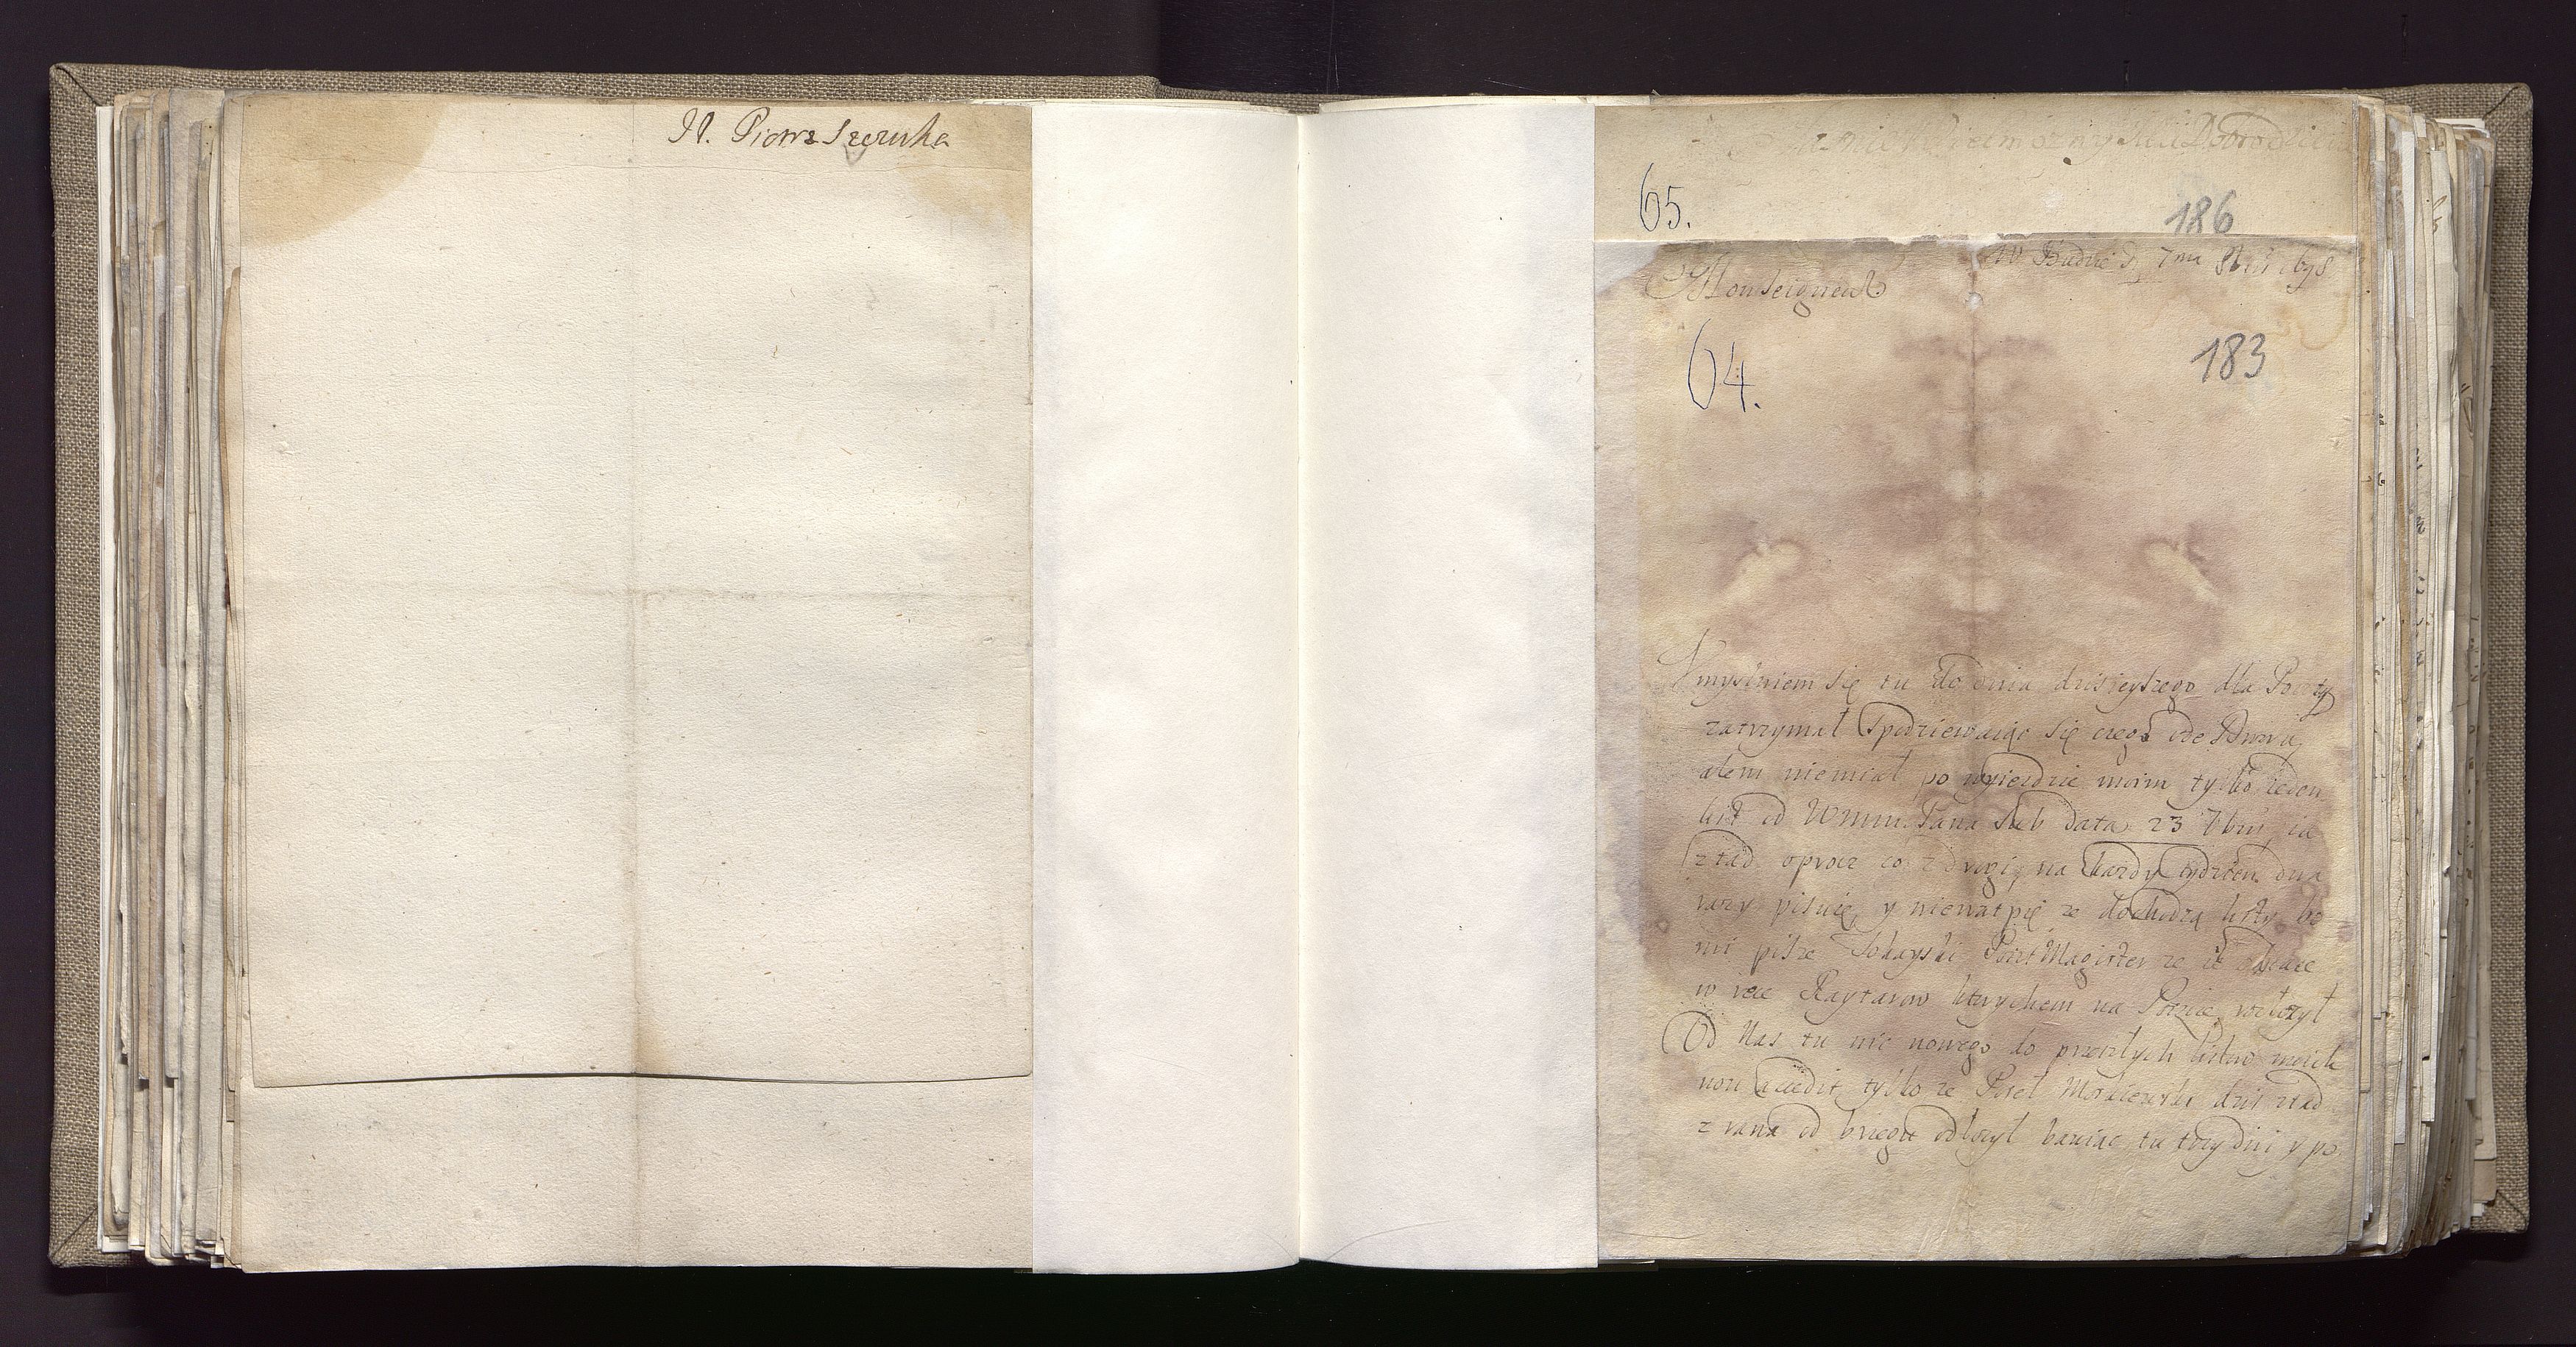 H. Piotra Szczuka
Wielmożny Dobrodzieiu
65.
186
W Budzie d 7ma 8bris 1698
Monseigneur
64.
183
Umyślniem się tu do dnia dzisieyszego dla Poczty
zatrzymał Spodziewaiąc się czego ode Dwora,
alem niemiał po wyiezdzie moim tylko ieden
list od WMM Pana sub data 23 7bris, ia
ztąd oprocz co z drogi, na każdy tydzien dwa
razy piszę, y niewątpię ze dochodzą listy bo
mi pisze Tokayski PosztMagister ze ie oddaie
w ręce Raytarow ktorychem na Poczcie rozłożył
Od Nas tu nic nowego do przeszłych listow moich
non accedit, tylko ze Poseł Moskiewski dziś ztąd
z rana od brzegu odłożył bawiąc tu trzy dni y po